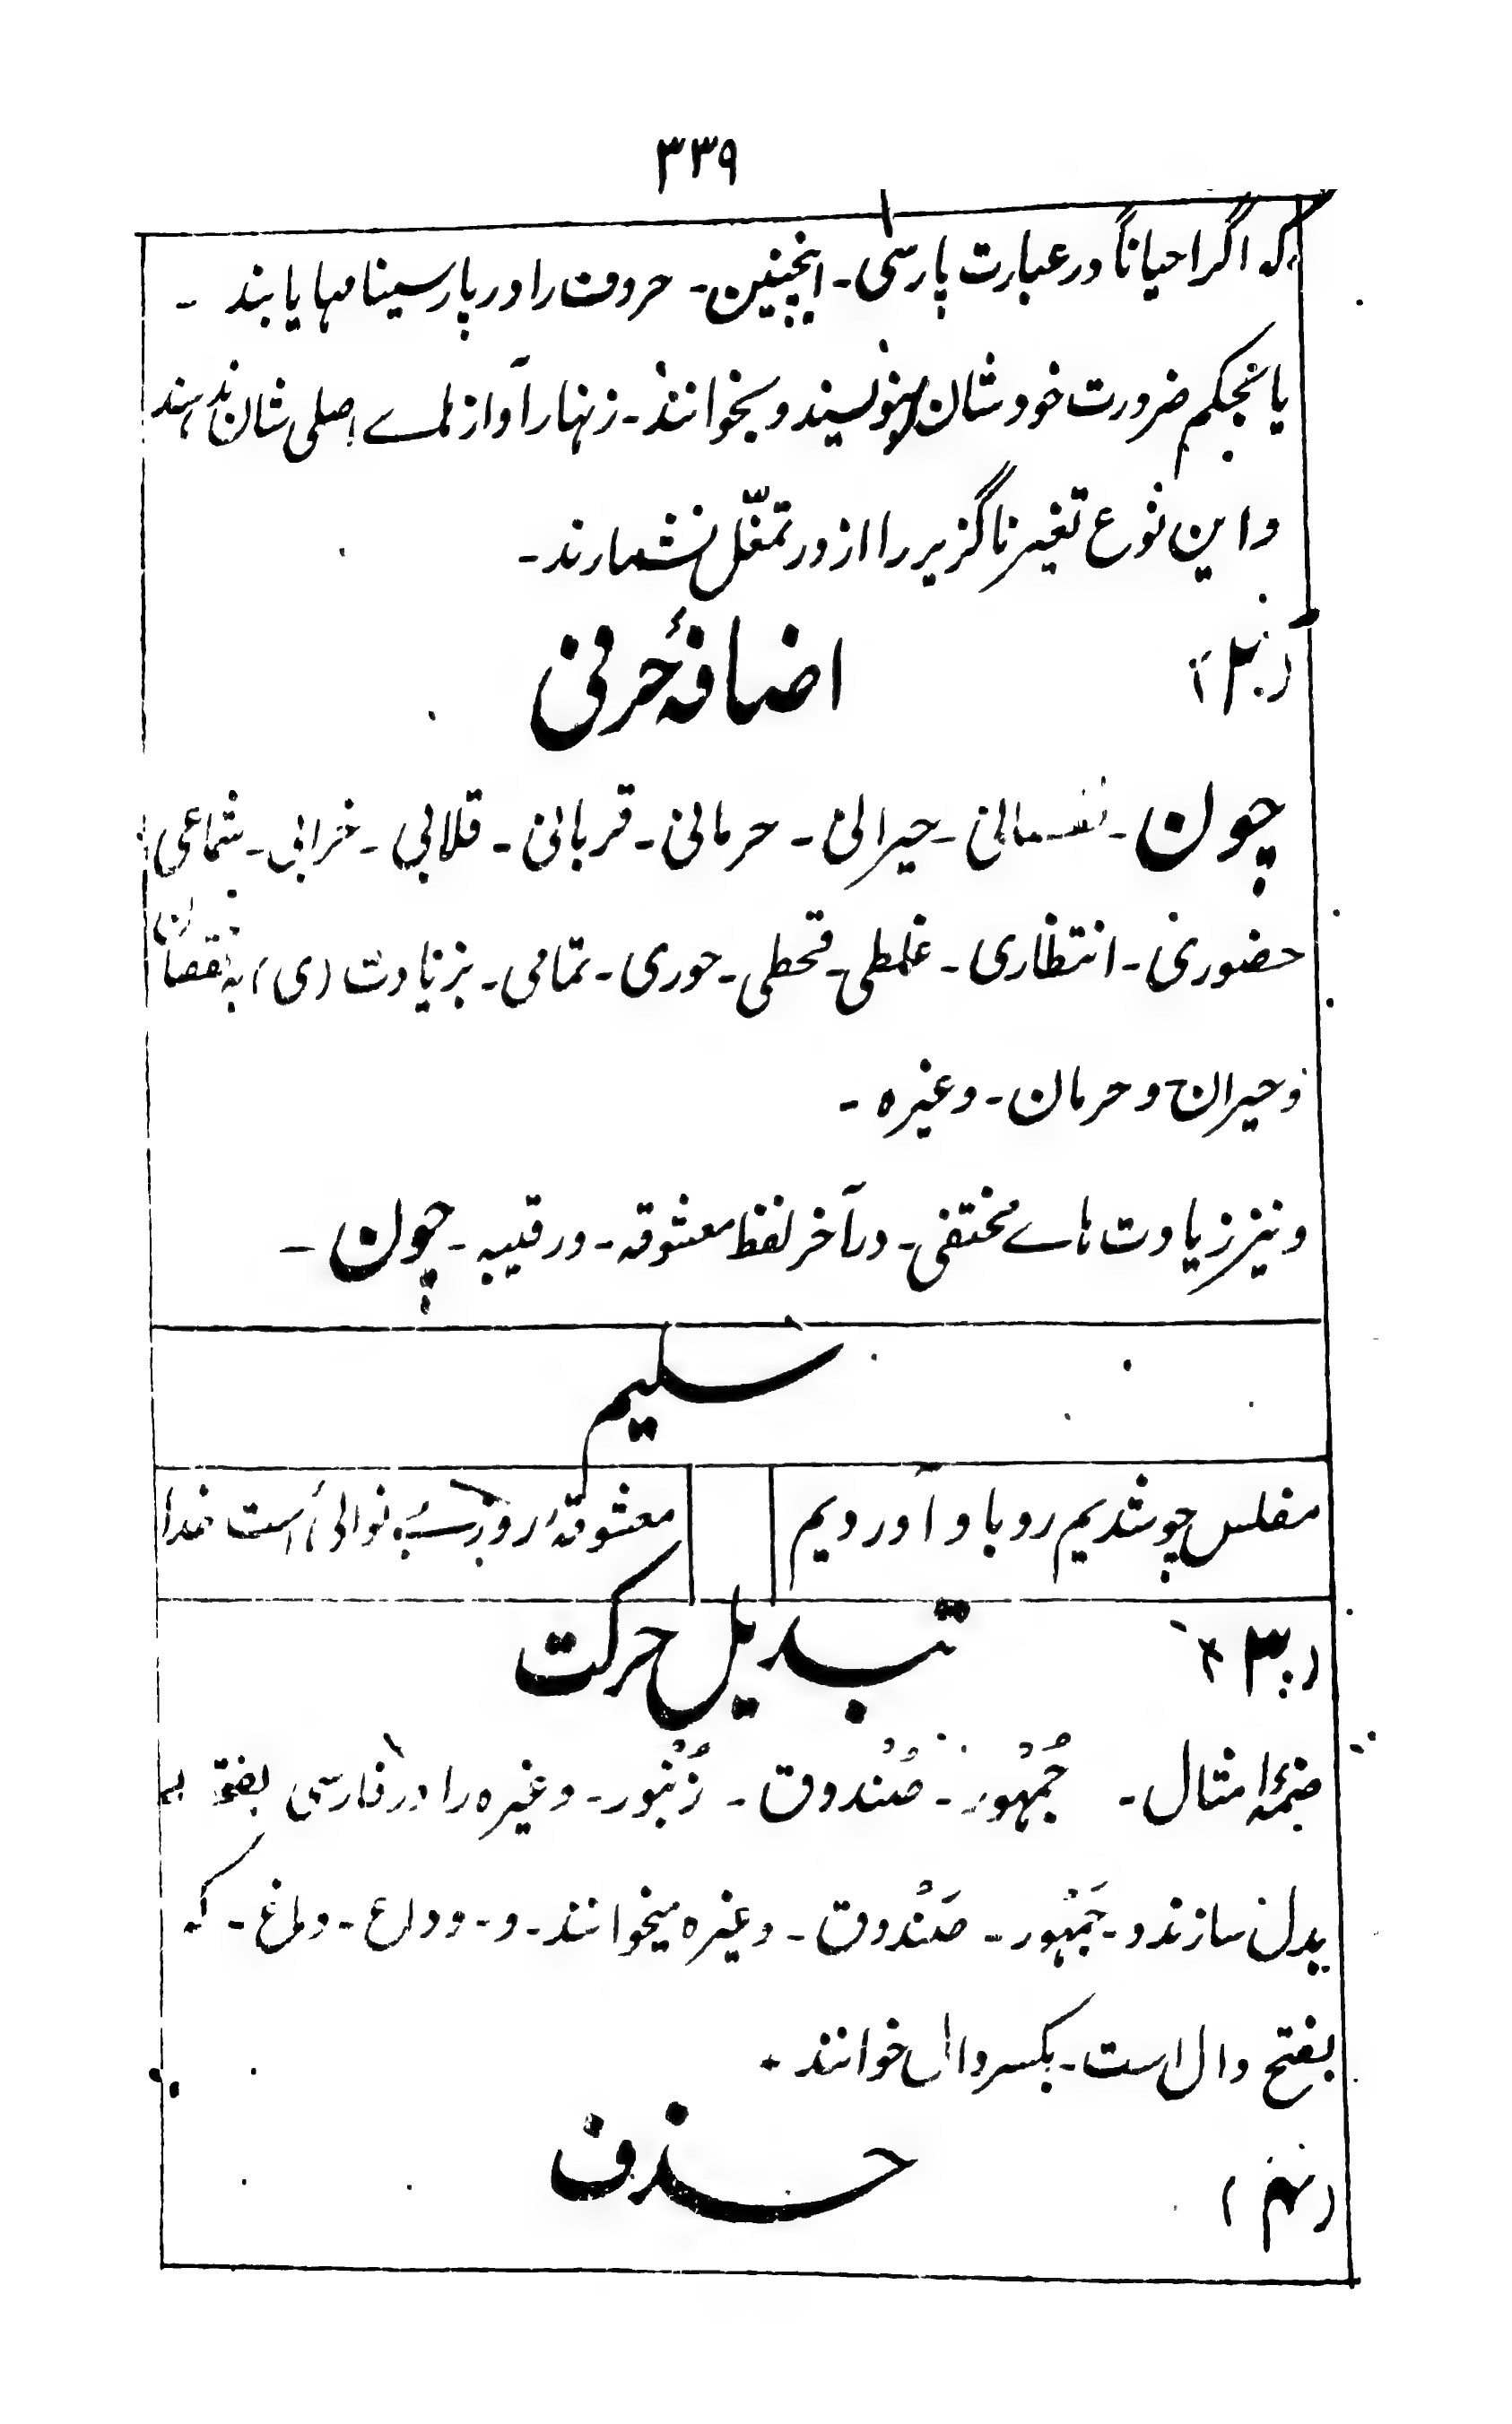 ۳۳۹
که اگر احیاناً در عبارت پارسی۔ اینچنین۔ حروف را در پارسینامها یابند۔
یا بحکم ضرورت خودشان بنویسند و بخوانند۔ زنهار آواز ہاے اصلی شان ندہند
و این نوع تغیر ناگزیر را از در تمغّل نشمارند۔
(۲)
اضافهٔ حرفی
چون۔ نقصانی۔ حیرانی۔ حرمانی۔ قربانی۔ قلابی۔ خرابی۔ شماعی
حضوری۔ انتظاری۔ غلطی۔ قحطی۔ حوری۔ تمامی۔ بزیادت (ی) به نقصان
و حیران و حرمان۔ وغیره۔
و نیز زیادت ہاے مختفی۔ در آخر لفظ معشوقه۔ و رقیبه۔ چون۔
سلیم
مفلس چو شدیم رو باو آوردیم
معشوقهٔ روز بے نوائی است خدا
(۳)
تبدیل حرکت
ضمّهٔ امثال۔ جُمْہُور۔ صُنْدوق۔ زُنْبور۔ وغیره را در فارسی بفتحه
بدل سازند و۔ جَمْہُور۔ صَنْدُوق۔ وغیره میخوانند۔ و۔ وداع۔ دماغ۔ که
بفتح دال است۔ بکسر دال خوانند۔
(۴)
حذف